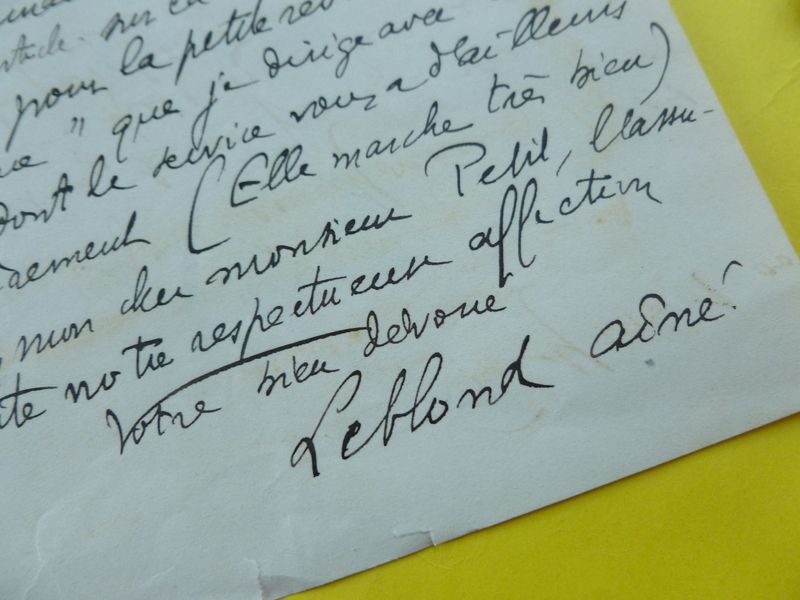 pour la petite rev
" que je dirige avec
dont le service vous a d'ailleurs
(Elle marche très bien)
mon cher monsieur Petit, l'assu-
notre respectueuse affection
Votre bien dévoué
Leblond aîné.